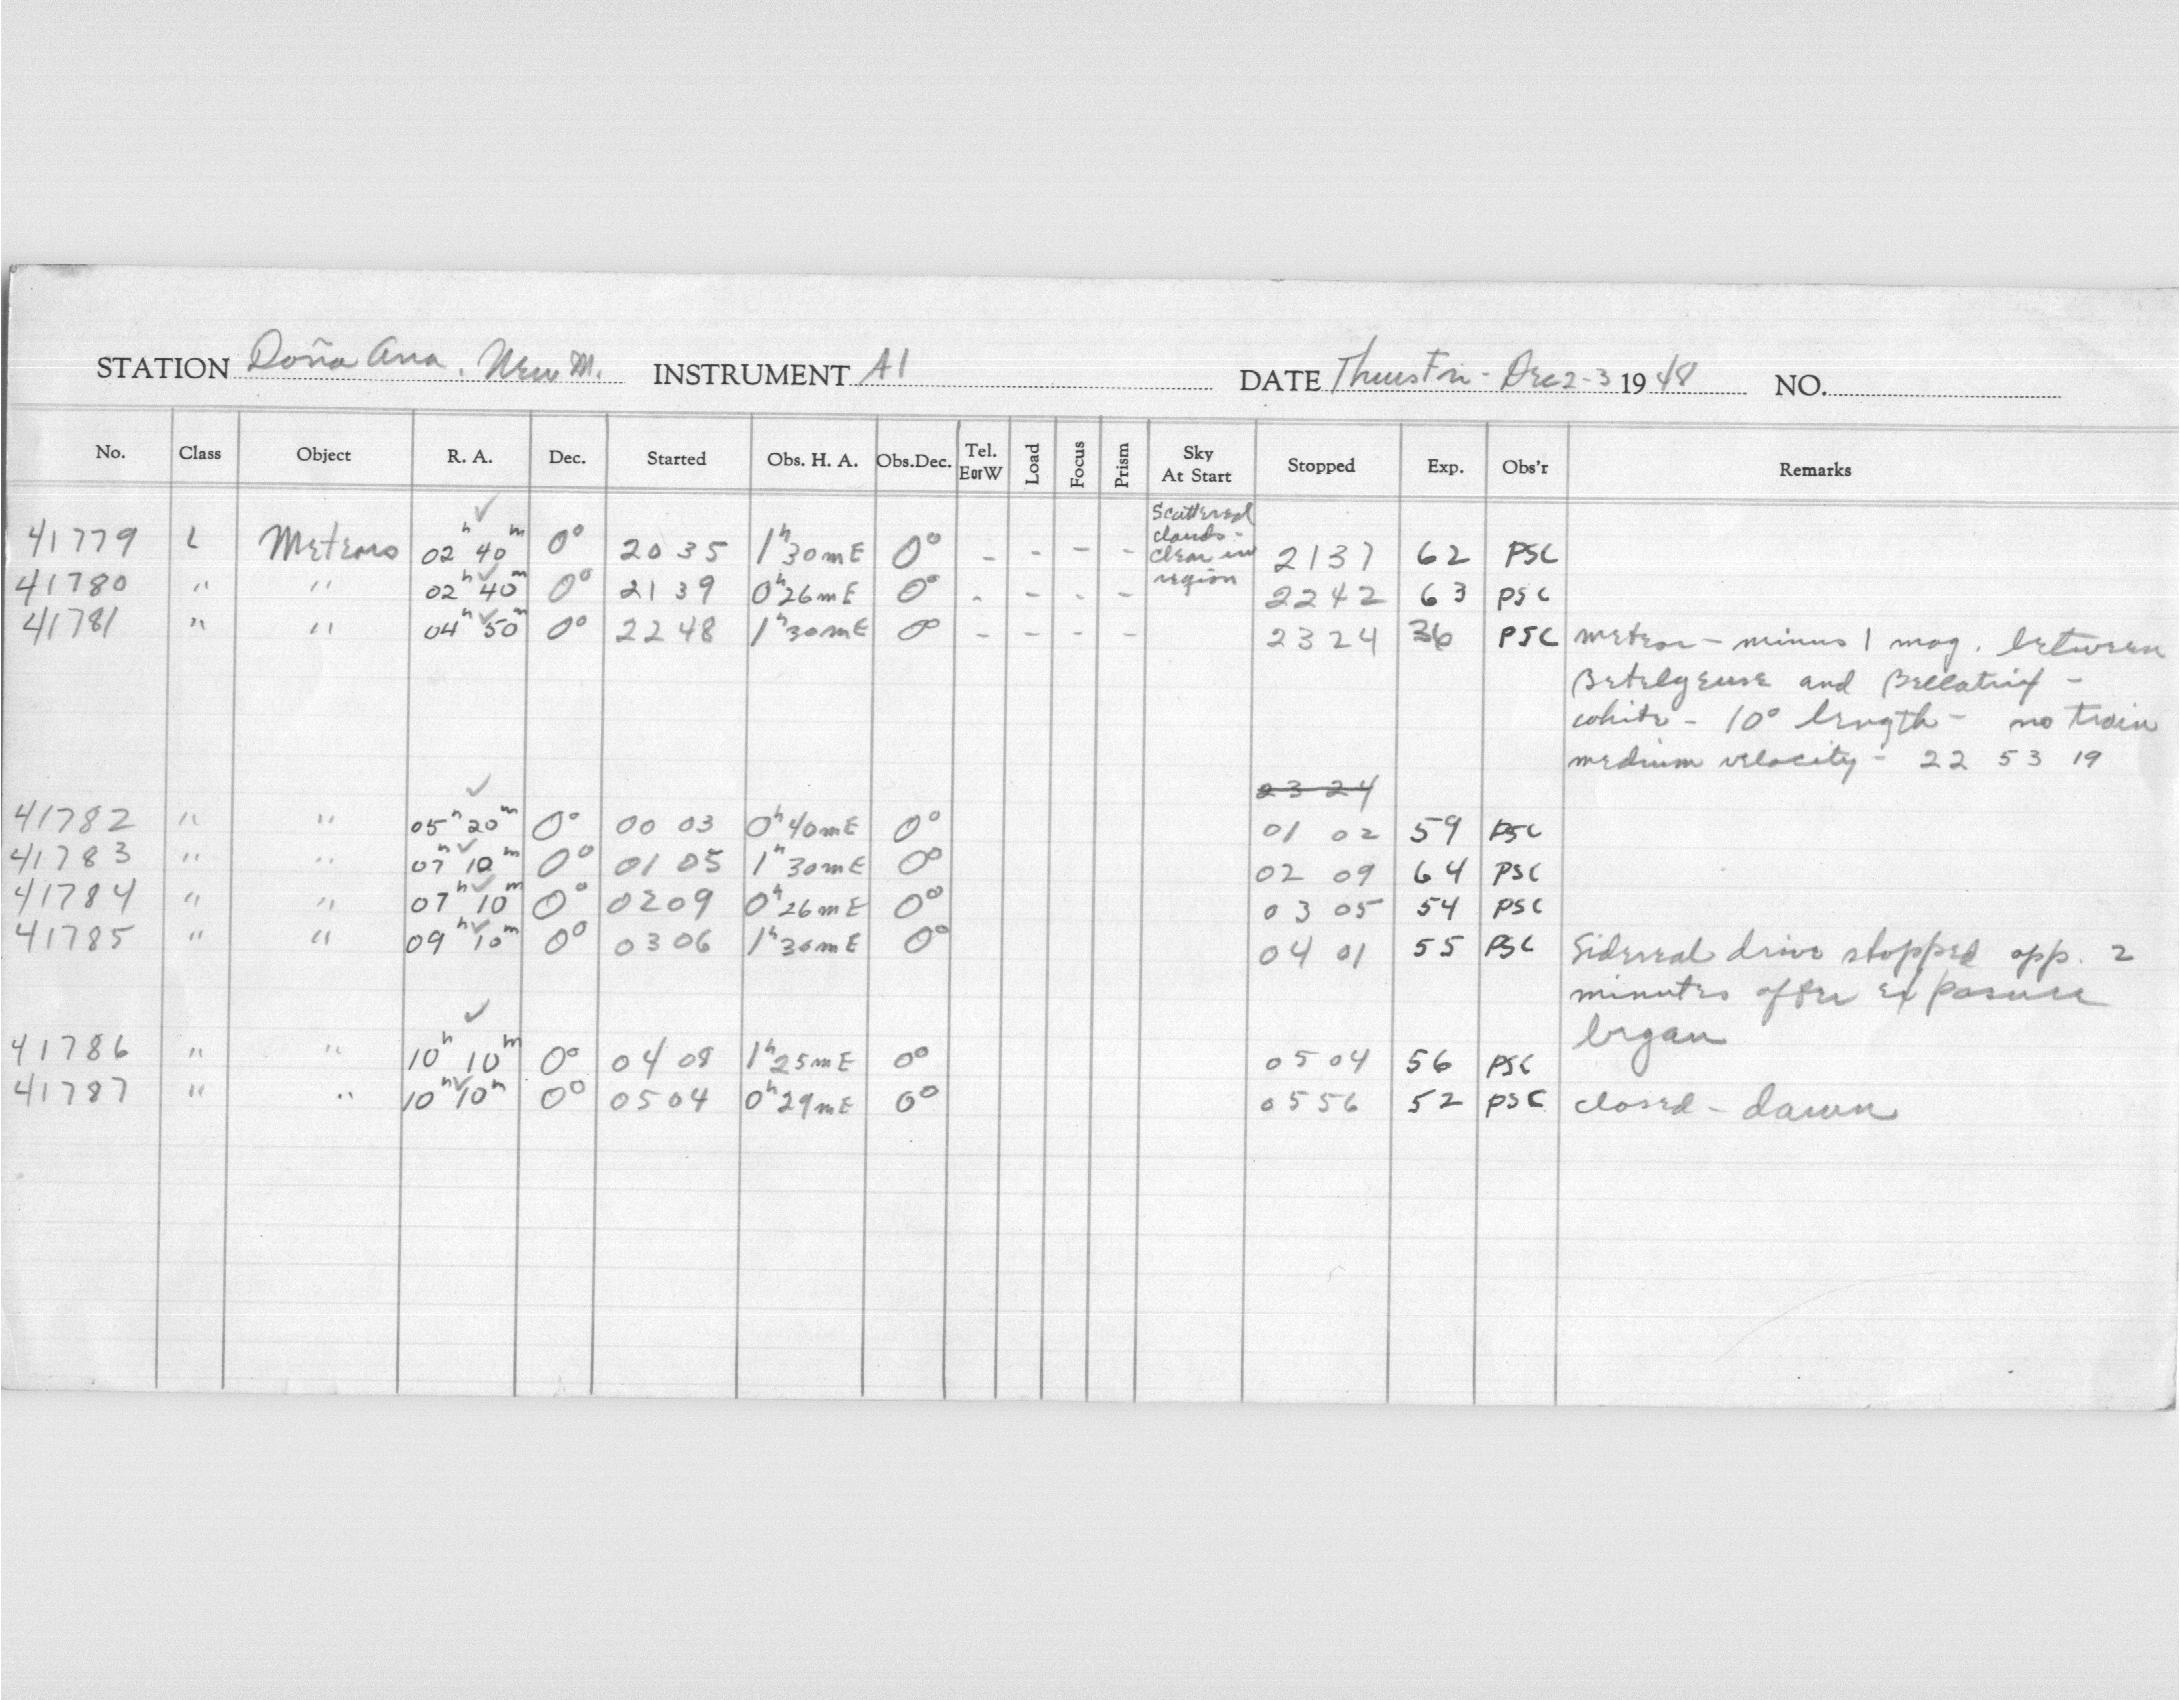 STATION Doña Ana, New M. INSTRUMENT A1 DATE Thurs Fri - Dec 2-3 1948 NO.
No. Class Object R. A. Dec. Started Obs. H. A. Obs.Dec. Tel. E or W Load Focus Prism Sky At Start Stopped Exp. Obs'r Remarks
41779 L Meteors 02h 40m ✓ 0° 20 35 1h 30mE 0° - - - - Scattered clouds - clear in region 21 37 62 PSC
41780 " " 02h 40m ✓ 0° 21 39 0h 26mE 0° - - - - 22 42 63 PSC
41781 " " 04h 50m ✓ 0° 22 48 1h 30mE 0° - - - - 23 24 36 PSC meteor - minus 1 mag. between
Betelgeuse and Bellatrix -
white - 10° length - no train
medium velocity - 22 53 19
23 24
41782 " " 05h 20m ✓ 0° 00 03 0h 40mE 0° 01 02 59 PSC
41783 " " 07h 10m ✓ 0° 01 05 1h 30mE 0° 02 09 64 PSC
41784 " " 07h 10m ✓ 0° 02 09 0h 26mE 0° 03 05 54 PSC
41785 " " 09h 10m ✓ 0° 03 06 1h 30mE 0° 04 01 55 PSC Sidereal drive stopped app. 2
minutes after exposure
began
41786 " " 10h 10m ✓ 0° 04 08 1h 25mE 0° 05 04 56 PSC
41787 " " 10h 10m ✓ 0° 05 04 0h 29mE 0° 05 56 52 PSC closed - dawn